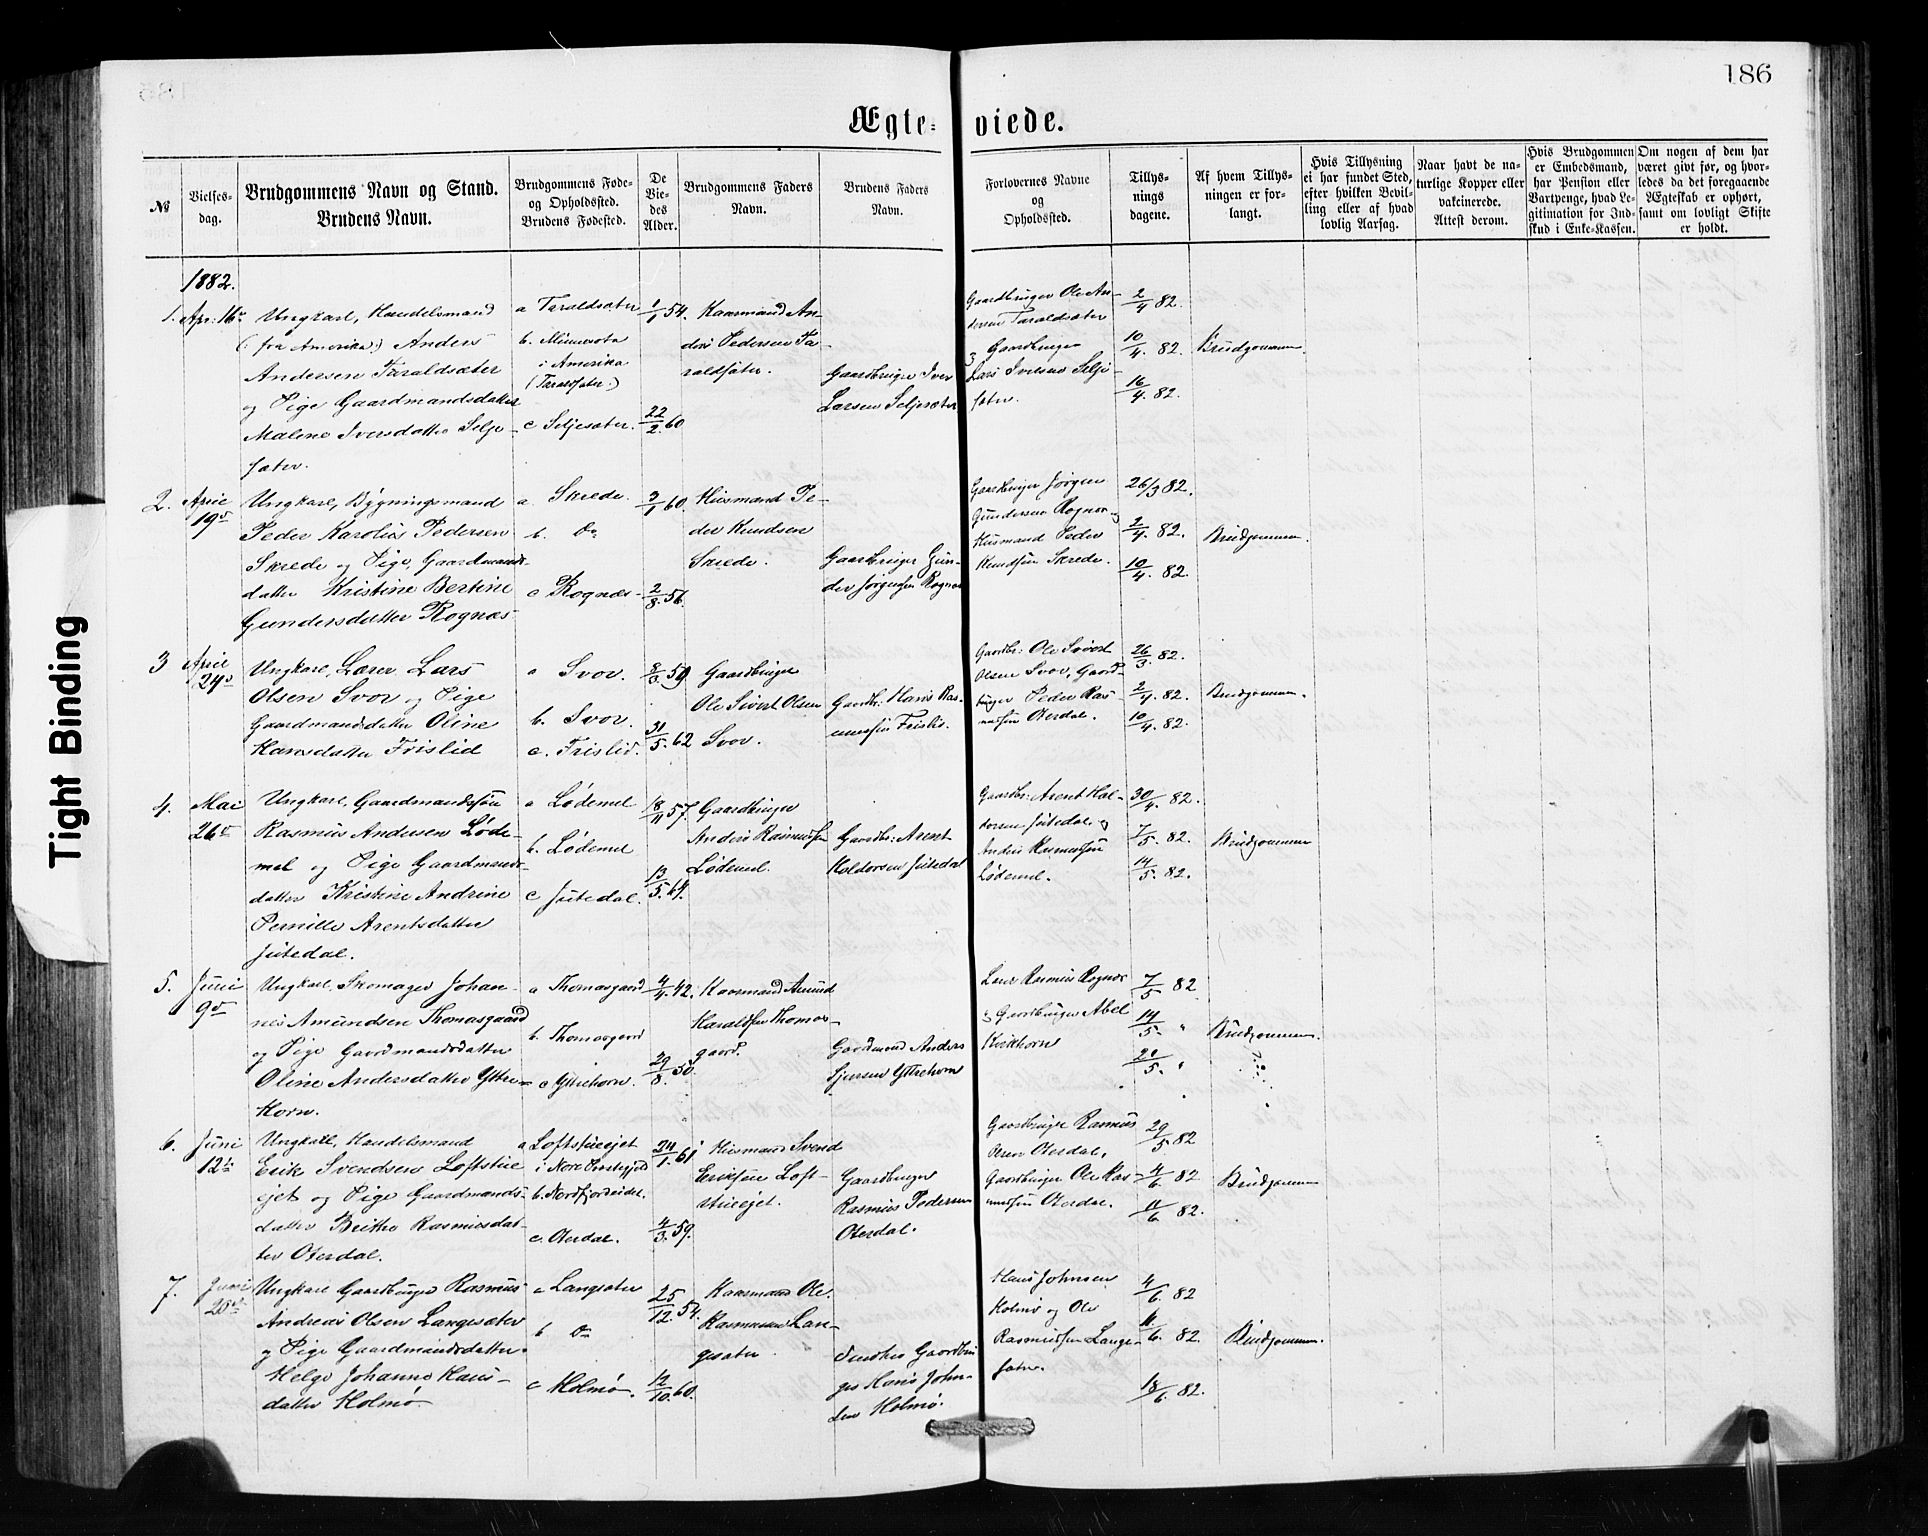 186
Ægte-viede.
№
Vielses-
dag.
Brudgommens Navn og Stand.
Brudens Navn.
Brudgommens Føde-
og Opholdssted.
Brudens Fødested.
De
Vie-
des
Alder.
Brudgommens Faders
Navn.
Brudens Faders
Navn.
Forlovernes Navne
og
Opholdssted.
Tillys-
nings
dagene.
Af hvem Tillys-
ningen er for-
langt.
Hvis Tillysning
ei har fundet Sted,
efter hvilken Bevil-
ling eller af hvad
lovlig Aarsag.
Naar havt de na-
turlige Kopper eller
vakcinerede.
Attest derom.
Hvis Brudgommen
er Embedsmand,
har Pension eller
Vartpenge, hvad Le-
gitimation for Ind-
skud i Enke-Kassen.
Om nogen af dem har
været givt før, og hvor-
ledes da det foregaaende
Ægteskab er ophørt,
samt om lovligt Skifte
er holdt.
1882.
1.
Apr: 16de
Ungkarl, Handelsmand
(: fra Amerika:) Anders
Andersen Taraldsæter
og Pige Gaardmandsdatter
Malene Iversdatter Selje-
sæter.
a Taraldsæter
b. Minnesota
i Amerika
(Taraldsæter:)
c Seljesæter.
1/1 54.
22/2 60
Kaarmand An-
ders Pedersen Ta-
raldsæter.
Gaardbruger Iver
Larsen Seljesæter
Gaardbruger Ole An-
dersen Taraldsæter
og Gaardbruger
Lars Iversen Selje-
sæter.
2/4 82.
10/4. 82.
16/4. 82.
Brudgommen
2.
April
19de
Ungkarl, Bygningsmand
Peder Karolius Pedersen
Skrede og Pige, Gaardmands-
datter Kristine Bertine
Gundersdatter Rognæs
a. Skrede.
b. Do
c Rognæs
3/1 60.
2/8. 56.
Husmand Pe-
der Knudsen
Skrede.
Gaardbruger Gun-
der Jørgensen Rognæs
Gaardbruger Jørgen
Gundersen Rognæs og
Husmand Peder
Knudsen Skrede.
26/3 82.
2/4. 82.
10/4. 82.
Brudgommen.
3
April
24de
Ungkarl, Lærer Lars
Olsen Svor og Pige
Gaardmandsdatter Oline
Hansdatter Frislid
a Svor.
b. Svor.
c. Frislid.
8/3. 59
31/5. 62
Gaardbruger
Ole Sivert Olsen
Svor.
Gaardbr: Hans Ras-
mussen Frislid.
Gaardbr: Ole Sivert
Olsen Svor, Gaard-
bruger Peder Ras-
mussen Oterdal.
26/3. 82.
2/4. 82.
10/4. 82.
Brudgommen.
4.
Mai
26de
Ungkarl, Gaardmandssøn
Rasmus Andersen Løde-
mel og Pige Gaardmands-
datter Kristine Andrine
Pernille Arentsdatter
Jutedal.
a Lødemel
b. Lødemel
c Jutedal.
18/11 57.
13/5. 64.
Gaardbruger
Anders Rasmussen
Lødemel.
Gaardbr: Arent
Koldorsen Jutedal
Gaardbr: Arent Hal-
dorsen Jutedal og
Anders Rasmussen
Lødemel.
30/4. 82.
7/5. 82.
14/5. 82.
Brudgommen
5.
Juni
9de
Ungkarl, Skomager Johan-
nes Amundsen Thomasgaard
og Pige Gaardmandsdatter
Oline Andersdatter Yttre-
horn.
a Thomasgaard
b. Thomasgaard
c Yttrehorn.
4/4. 42.
29/8. 50.
Kaarmand Amund
Haraldsen Thomas-
gaard.
Gaardmand Anders
Sjursen Yttrehorn
Lærer Rasmus Rognæs
og Gaardbruger Abel
Kvithorn
7/5 82
14/5. "
21/5. "
Brudgommen.
6.
Juni
12te
Ungkarl, Handelsmand
Erik Svendsen Loftstue
ejet og Pige Gaardmands-
datter Brithe Rasmusdat-
ter Oterdal.
a Loftstueejet
i Nore Præstegjeld
b. Nordfjordeidet.
c. Oterdal.
24/1. 61
4/3. 59.
Husmand Svend
Eriksen Loft-
stueejet.
Gaardbruger
Rasmus Pedersen
Oterdal.
Gaardbruger Rasmus
Olsen Oterdal,
Gaardbruger Ole Ras-
mussen Oterdal.
29/5 82
4/6 82
11/6 82.
Brudgommen
7.
Juni
20de
Ungkarl Gaardbruger Rasmus
Andreas Olsen Langesæter
og Pige Gaardmandsdatter
Helge Johanne Hans-
datter Holmø.
a Langesæter
b Do
c Holmø.
25/12. 54.
12/10. 60.
Kaarmand Ole
Rasmussen Lan-
gesæter.
Gaardbru
ger Hans John-
sen Holmø.
Hans Johnsen
Holmø og Ole
Rasmussen Lange-
sæter.
4/6. 82
11/6. 82.
18/6. 82.
Brudgommen.
Tight Binding